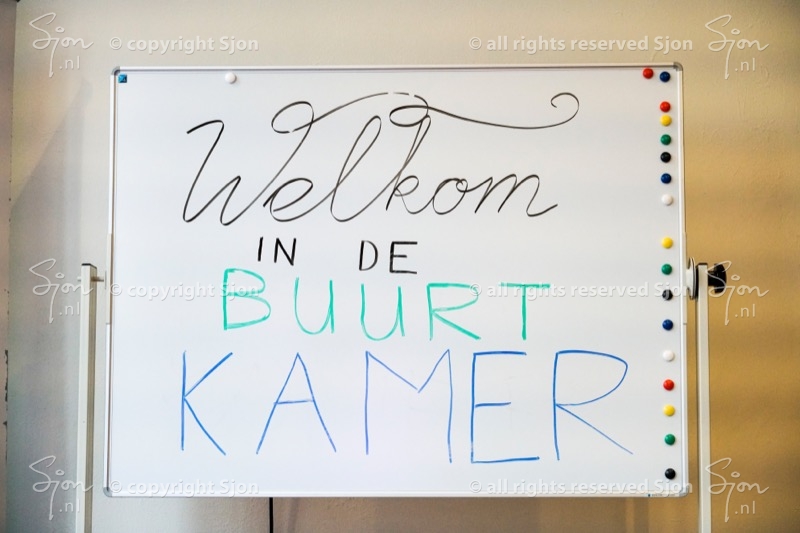 Sjon.nl © copyright Sjon © all rights reserved Sjon Sjon.nl
Welkom
IN DE
BUURT
KAMER
Sjon.nl © copyright Sjon © all rights reserved Sjon Sjon.nl
Sjon.nl © copyright Sjon © all rights reserved Sjon Sjon.nl